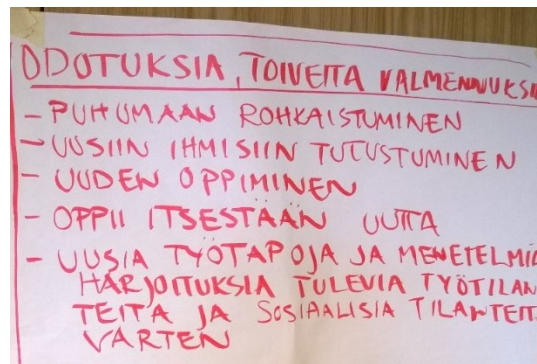 ODOTUKSIA, TOIVEITA VALMENNUKSI
- PUHUMAAN ROHKAISTUMINEN
- UUSIIN IHMISIIN TUTUSTUMINEN
- UUDEN OPPIMINEN
- OPPII ITSESTÄÄN UUTTA
- UUSIA TYÖTAPOJA JA MENETELMIÄ
HARJOITUKSIA TULEVIA TYÖTILAN
TEITA JA SOSIAALISIA TILANTEIT
VARTEN